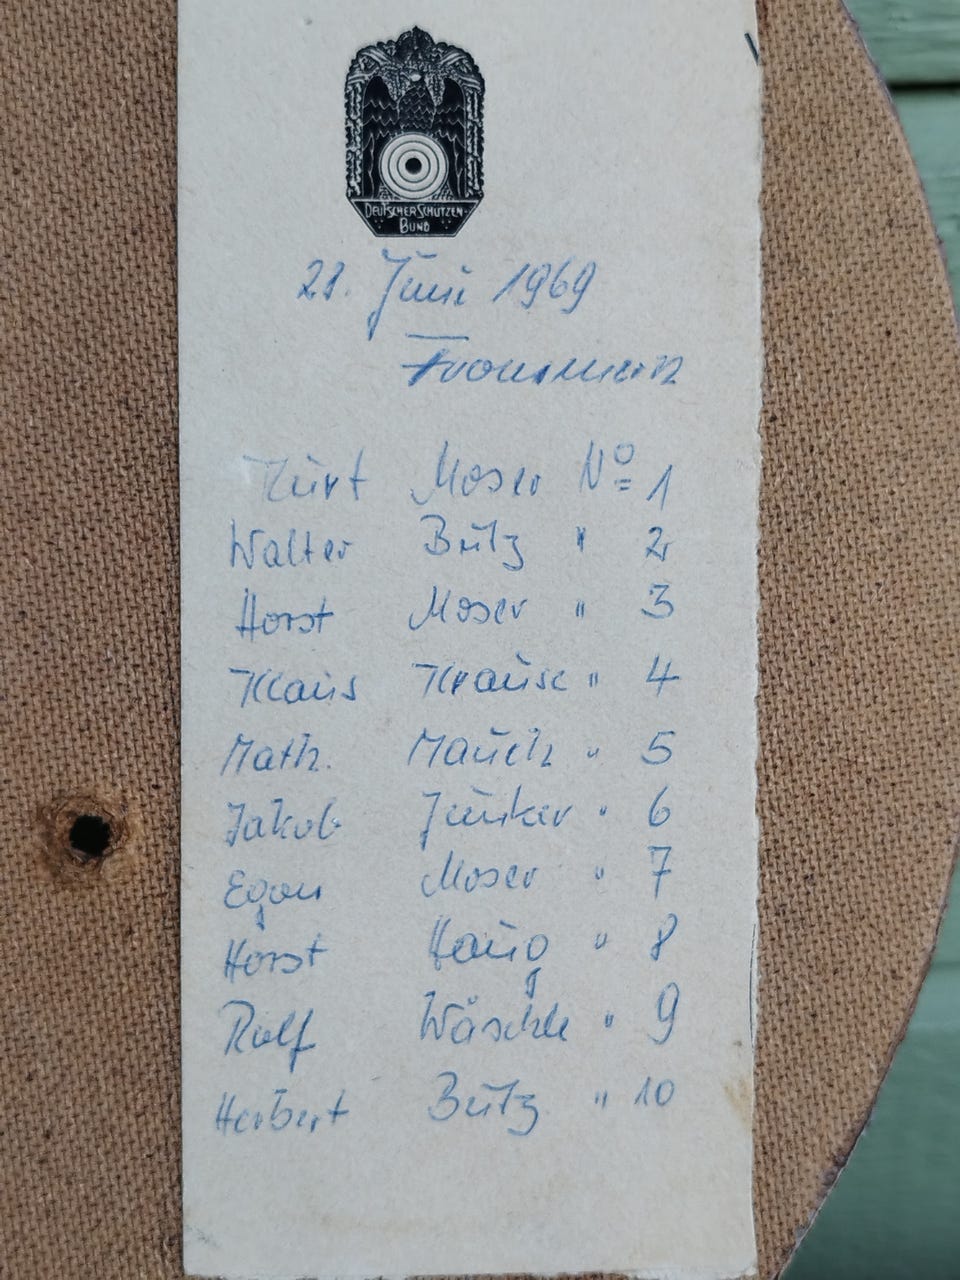 DEUTSCHER SCHÜTZEN-
BUND
21. Juni 1969
Frommern
Kurt Moser No 1
Walter Butz " 2
Horst Moser " 3
Klaus Krause " 4
Math. Mauch " 5
Jakob Junker " 6
Egon Moser " 7
Horst Haug " 8
Rolf Wäschle " 9
Herbert Butz " 10